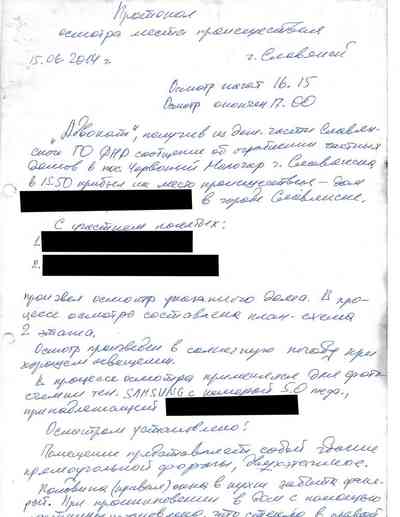 Протокол
осмотра места происшествия
15.06.2014 г. г. Славянск
Осмотр начат 16.15
Осмотр окончен 17.00
"Адвокат", получив из деж. части Славян-
ского ГО ДНР сообщение об ограблении частных
домов в пос. Червоный Молочар г. Славянска
в 1550 прибыл на место происшествия – дом
в городе Славянске.
С участием понятых:
1.
2.
произвел осмотр указанного дома. В про-
цессе осмотра составлена план-схема
2 этажа.
Осмотр произведен в солнечную погоду при
хорошем освещении.
В процессе осмотра применялся для фото
съемки тел. SAMSUNG с камерой 5.0 mpx.,
принадлежащий
Осмотром установлено:
Помещение представляет собой здание
прямоугольной формы, двухэтажное.
Половина (правая) окна в кухне забита фане-
рой. При проникновении в дом с помощью
установлено, что стекло в правой